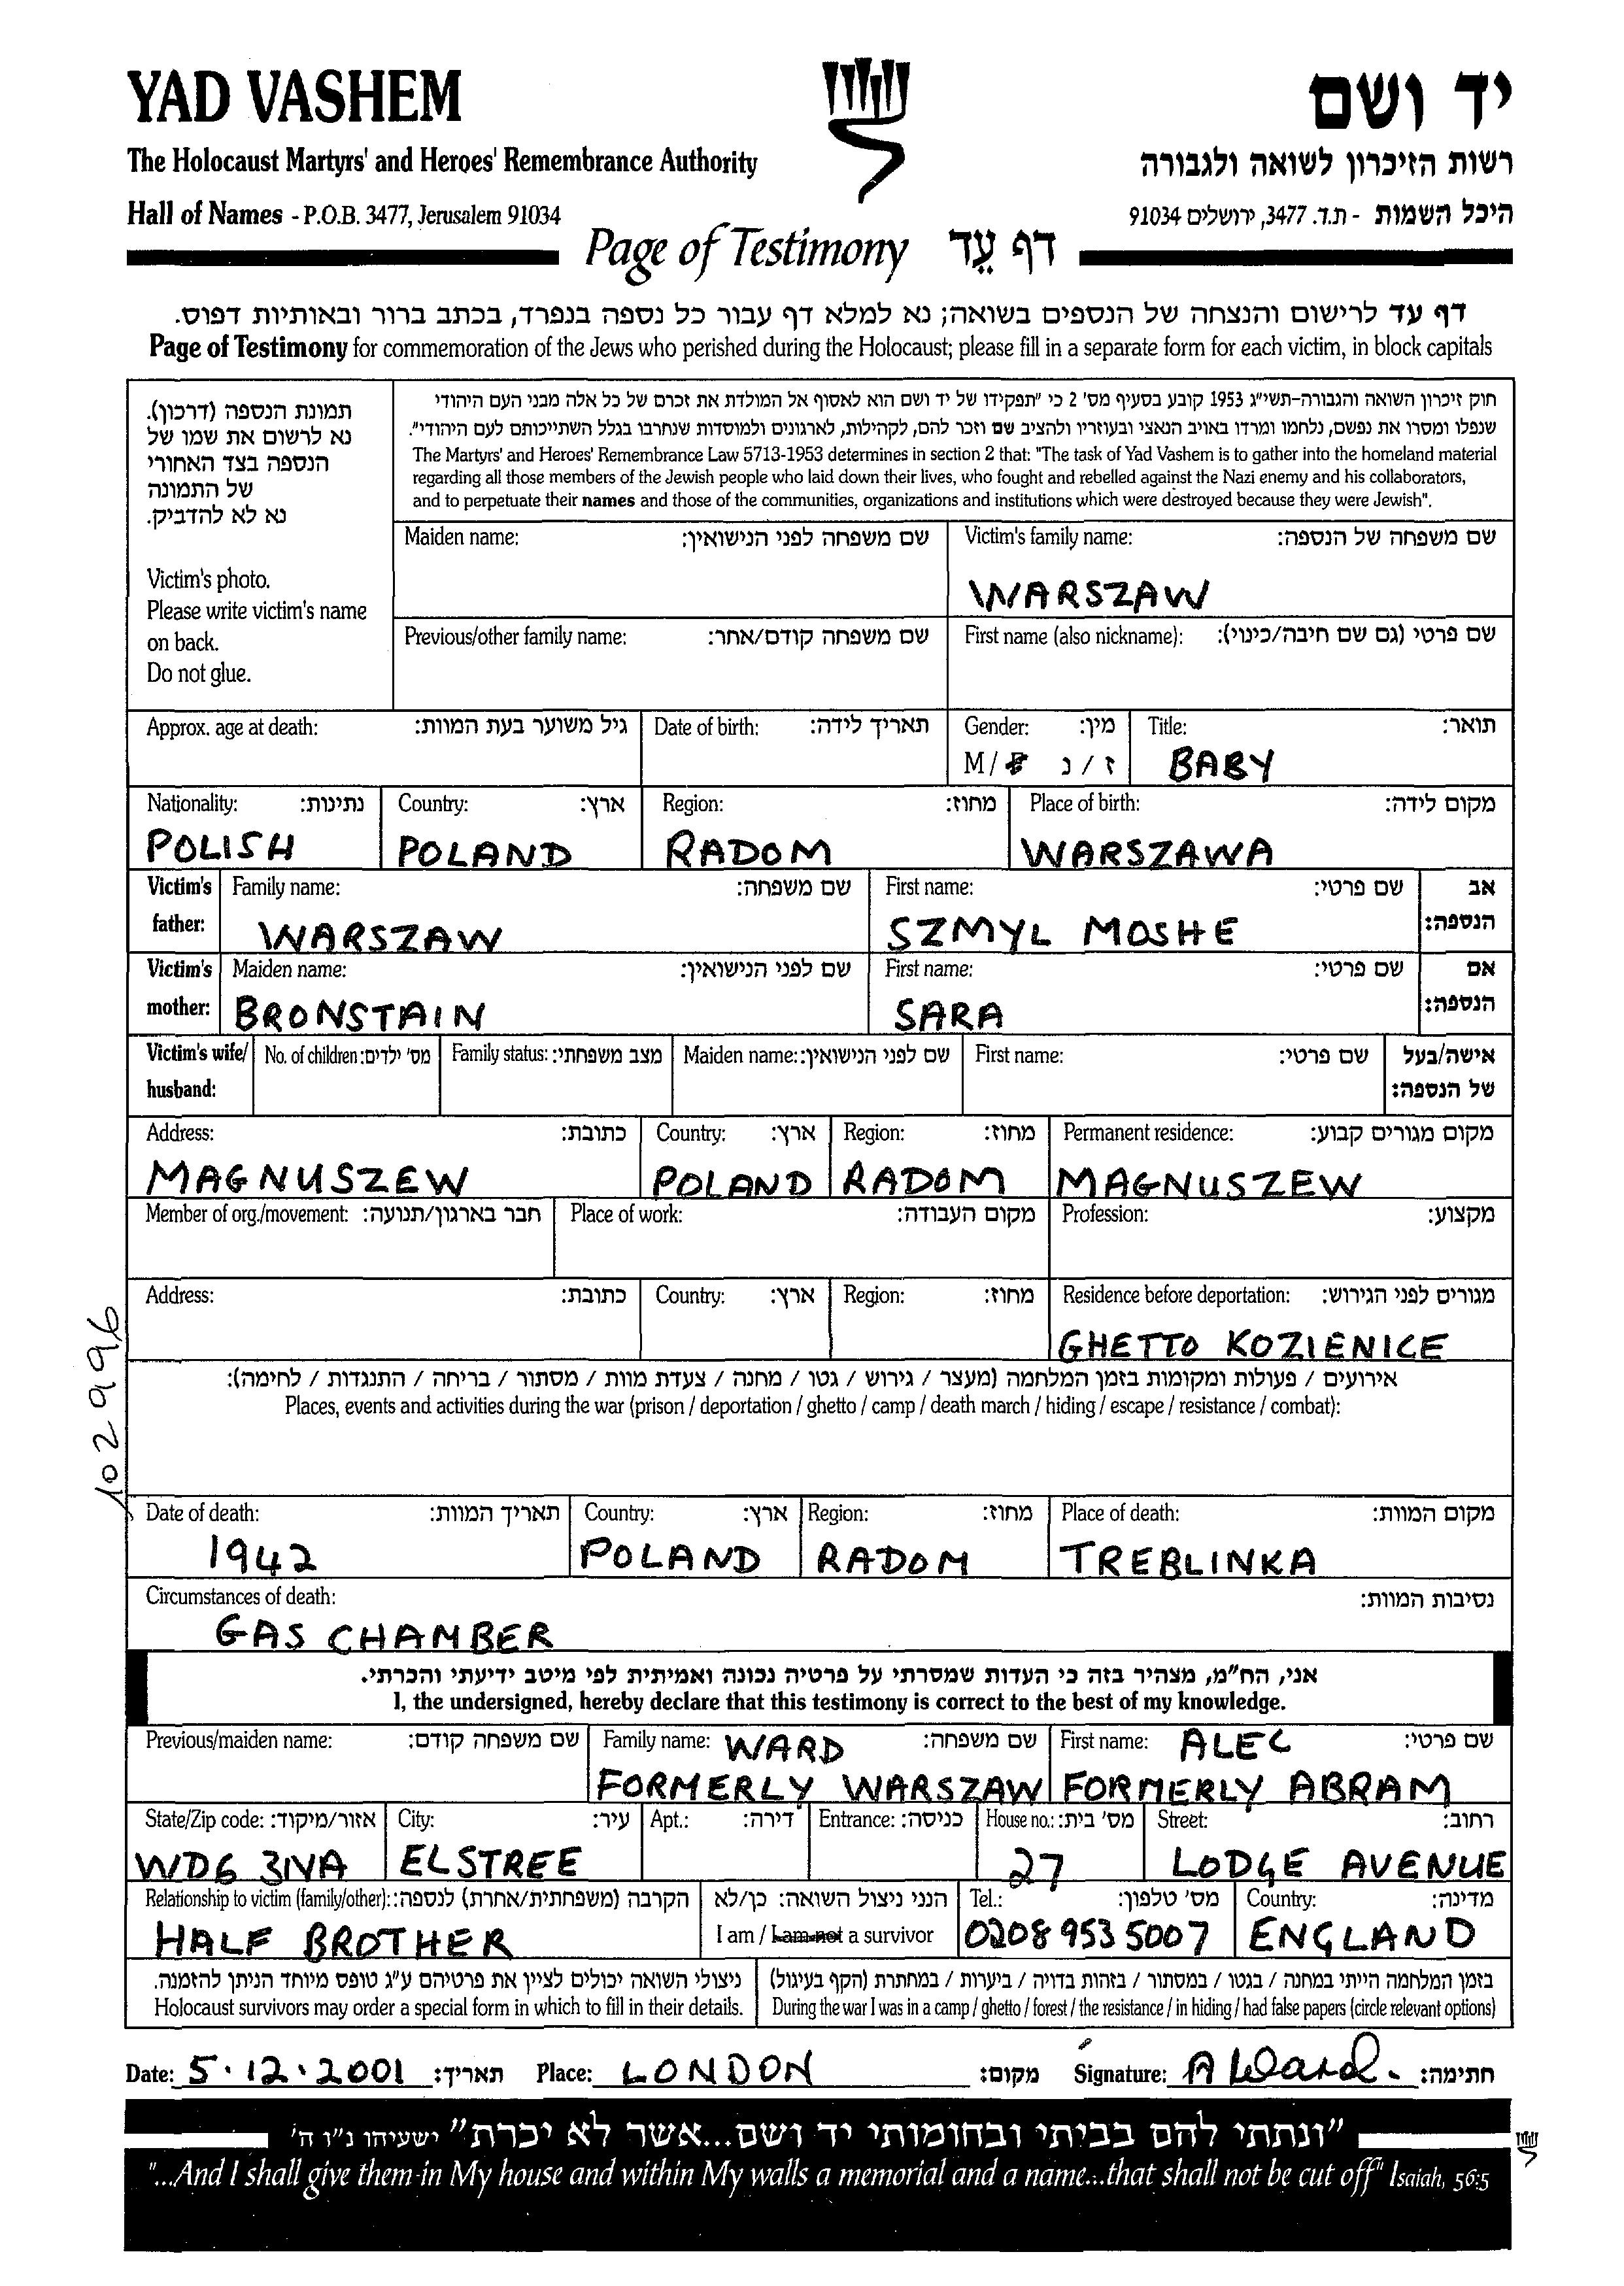 YAD VASHEM
יד ושם
The Holocaust Martyrs' and Heroes' Remembrance Authority
רשות הזיכרון לשואה ולגבורה
Hall of Names - P.O.B. 3477, Jerusalem 91034
היכל השמות - ת.ד. 3477, ירושלים 91034
Page of Testimony דף עֵד
דף עד לרישום והנצחה של הנספים בשואה; נא למלא דף עבור כל נספה בנפרד, בכתב ברור ובאותיות דפוס.
Page of Testimony for commemoration of the Jews who perished during the Holocaust; please fill in a separate form for each victim, in block capitals
תמונת הנספה (דרכון).
נא לרשום את שמו של
הנספה בצד האחורי
של התמונה
נא לא להדביק.
Victim's photo.
Please write victim's name
on back.
Do not glue.
חוק זיכרון השואה והגבורה-תשי"ג 1953 קובע בסעיף מס' 2 כי "תפקידו של יד ושם הוא לאסוף אל המולדת את זכרם של כל אלה מבני העם היהודי
שנפלו ומסרו את נפשם, נלחמו ומרדו באויב הנאצי ובעוזריו ולהציב שם וזכר להם, לקהילות, לארגונים ולמוסדות שנחרבו בגלל השתייכותם לעם היהודי".
The Martyrs' and Heroes' Remembrance Law 5713-1953 determines in section 2 that: "The task of Yad Vashem is to gather into the homeland material
regarding all those members of the Jewish people who laid down their lives, who fought and rebelled against the Nazi enemy and his collaborators,
and to perpetuate their names and those of the communities, organizations and institutions which were destroyed because they were Jewish".
Maiden name: שם משפחה לפני הנישואין:
Victim's family name: שם משפחה של הנספה:
WARSZAW
Previous/other family name: שם משפחה קודם/אחר:
First name (also nickname): שם פרטי (גם שם חיבה/כינוי):
Approx. age at death: גיל משוער בעת המוות:
Date of birth: תאריך לידה:
Gender: מין:
M / F ז / נ
Title: תואר:
BABY
Nationality: נתינות:
POLISH
Country: ארץ:
POLAND
Region: מחוז:
RADOM
Place of birth: מקום לידה:
WARSZAWA
Victim's father: Family name: שם משפחה:
WARSZAW
First name: שם פרטי: אב הנספה:
SZMYL MOSHE
Victim's mother: Maiden name: שם לפני הנישואין:
BRONSTAIN
First name: שם פרטי: אם הנספה:
SARA
Victim's wife/ husband: No. of children: מס' ילדים: Family status: מצב משפחתי: Maiden name: שם לפני הנישואין: First name: שם פרטי: אישה/בעל של הנספה:
Address: כתובת:
MAGNUSZEW
Country: ארץ:
POLAND
Region: מחוז:
RADOM
Permanent residence: מקום מגורים קבוע:
MAGNUSZEW
Member of org./movement: חבר בארגון/תנועה: Place of work: מקום העבודה: Profession: מקצוע:
Address: כתובת: Country: ארץ: Region: מחוז: Residence before deportation: מגורים לפני הגירוש:
GHETTO KOZIENICE
102996
אירועים / פעולות ומקומות בזמן המלחמה (מעצר / גירוש / גטו / מחנה / צעדת מוות / מסתור / בריחה / התנגדות / לחימה):
Places, events and activities during the war (prison / deportation / ghetto / camp / death march / hiding / escape / resistance / combat):
Date of death: תאריך המוות:
1942
Country: ארץ:
POLAND
Region: מחוז:
RADOM
Place of death: מקום המוות:
TREBLINKA
Circumstances of death: נסיבות המוות:
GAS CHAMBER
אני, הח"מ, מצהיר בזה כי העדות שמסרתי על פרטיה נכונה ואמיתית לפי מיטב ידיעתי והכרתי.
I, the undersigned, hereby declare that this testimony is correct to the best of my knowledge.
Previous/maiden name: שם משפחה קודם:
Family name: WARD שם משפחה:
FORMERLY WARSZAW
First name: ALEC שם פרטי:
FORMERLY ABRAM
State/Zip code: אזור/מיקוד:
WD6 3NA
City: עיר:
ELSTREE
Apt.: דירה: Entrance: כניסה: House no.: מס' בית:
27
Street: רחוב:
LODGE AVENUE
Relationship to victim (family/other): הקרבה (משפחתית/אחרת) לנספה:
HALF BROTHER
הנני ניצול השואה: כן/לא
I am / I am not a survivor
Tel.: מס' טלפון:
0208 953 5007
Country: מדינה:
ENGLAND
ניצולי השואה יכולים לציין את פרטיהם ע"ג טופס מיוחד הניתן להזמנה.
Holocaust survivors may order a special form in which to fill in their details.
בזמן המלחמה הייתי במחנה / בגטו / במסתור / בזהות בדויה / ביערות / במחתרת (הקף בעיגול)
During the war I was in a camp / ghetto / forest / the resistance / in hiding / had false papers (circle relevant options)
Date: 5.12.2001 תאריך: Place: LONDON מקום: Signature: A Ward. חתימה:
"ונתתי להם בביתי ובחומותי יד ושם...אשר לא יכרת" ישעיהו נ"ו ה'
"...And I shall give them in My house and within My walls a memorial and a name...that shall not be cut off" Isaiah, 56:5